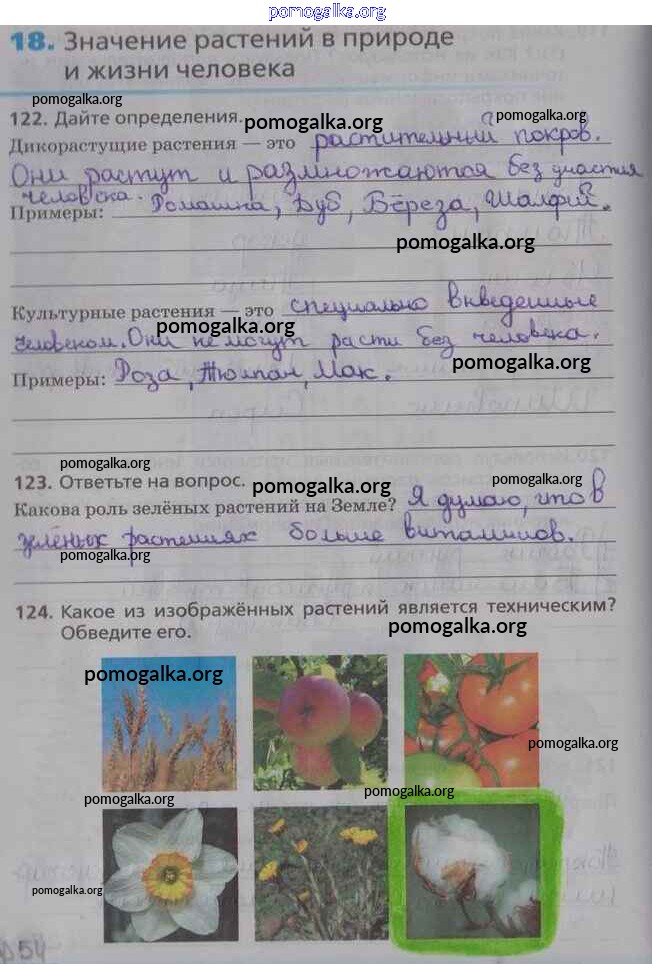 pomogalka.org
18. Значение растений в природе
и жизни человека
pomogalka.org
122. Дайте определения. pomogalka.org pomogalka.org
Дикорастущие растения — это растительный покров.
Они растут и размножаются без участия
человека.
Примеры: Ромашка, Дуб, Берёза, Шалфей.
pomogalka.org
Культурные растения — это специально введенные
pomogalka.org
человеком. Они не могут расти без человека.
pomogalka.org
Примеры: Роза, Тюлпан, Мак.
pomogalka.org
123. Ответьте на вопрос. pomogalka.org pomogalka.org
Какова роль зелёных растений на Земле? Я думаю, что в
зелёных растениях больше витаминов.
pomogalka.org
124. Какое из изображённых растений является техническим?
Обведите его. pomogalka.org
pomogalka.org
pomogalka.org
pomogalka.org pomogalka.org
pomogalka.org
54